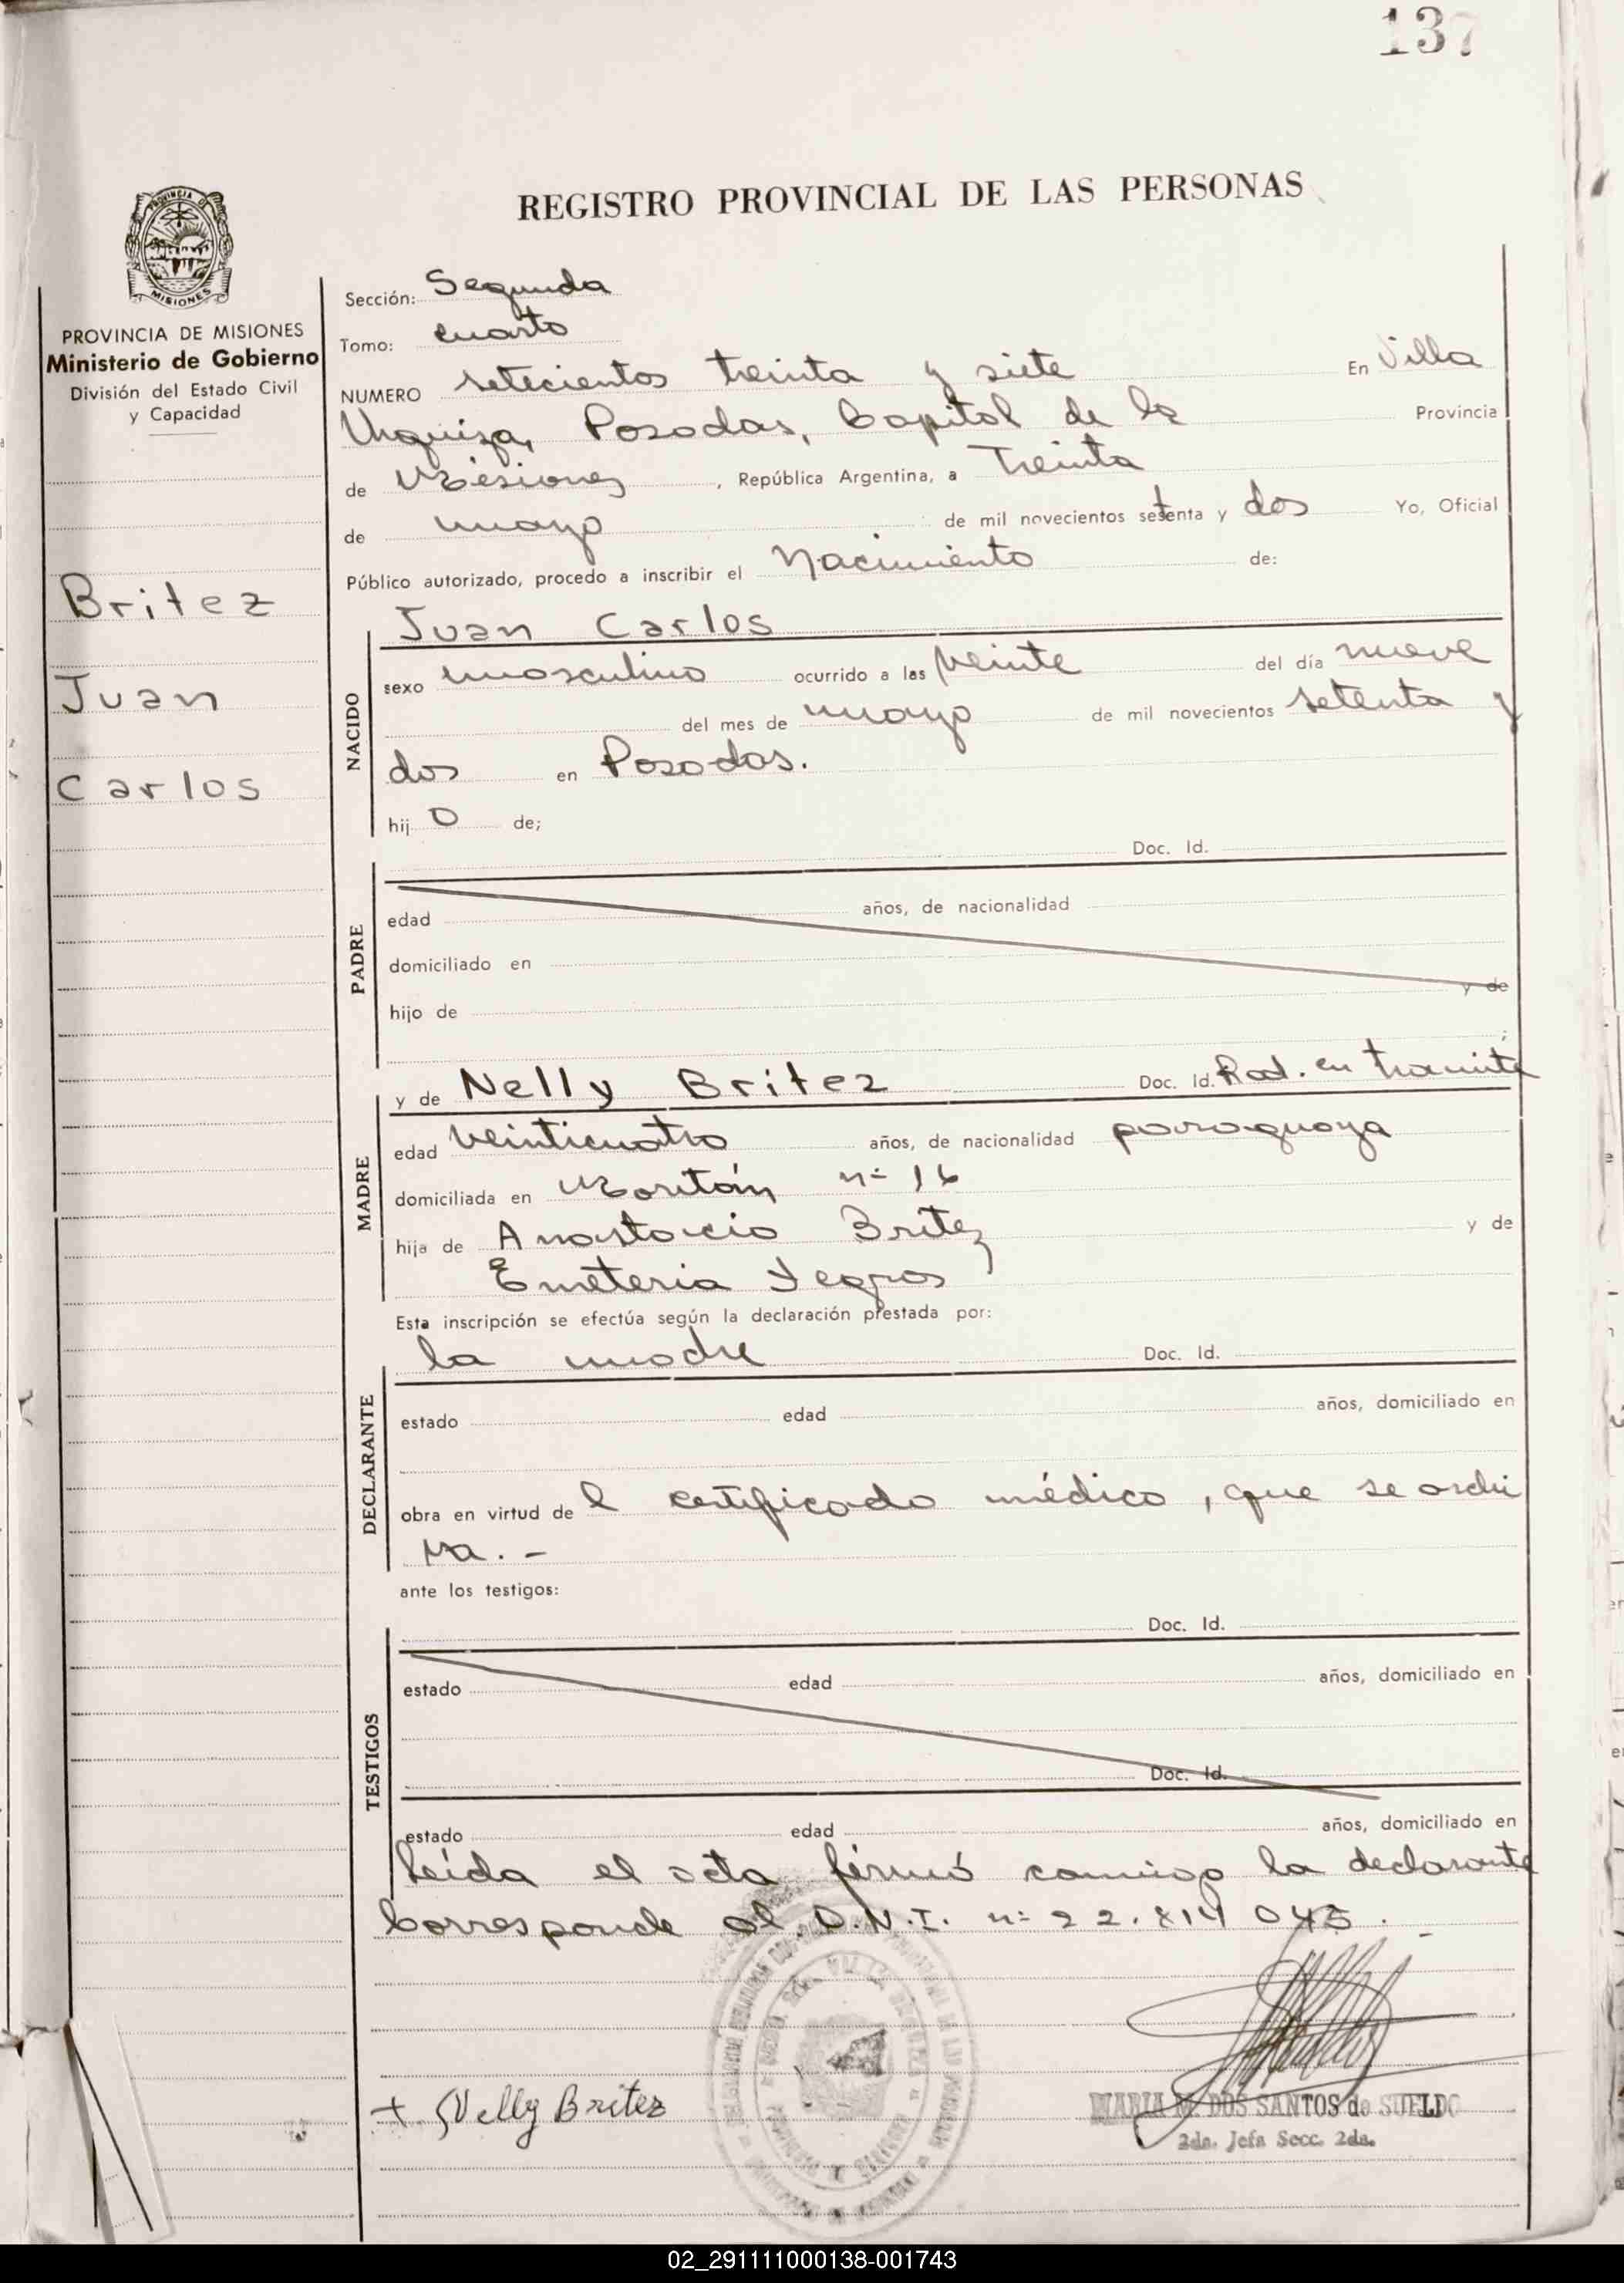 137
REGISTRO PROVINCIAL DE LAS PERSONAS
PROVINCIA DE MISIONES
Ministerio de Gobierno
División del Estado Civil
y Capacidad
Britez
Juan
Carlos
Sección: Segunda
Tomo: cuarto
NUMERO setecientos treinta y siete En Villa
Urquiza, Posadas, Capital de la Provincia
de Misiones, República Argentina, a Treinta
de mayo de mil novecientos setenta y dos Yo, Oficial
Público autorizado, procedo a inscribir el Nacimiento de:
Juan Carlos
NACIDO
sexo masculino ocurrido a las veinte del día nueve
del mes de mayo de mil novecientos setenta y
dos en Posadas.
hij o de;
Doc. Id.
PADRE
edad años, de nacionalidad
domiciliado en
hijo de y de
y de Nelly Britez Doc. Id. Rad. en tramite
MADRE
edad veinticuatro años, de nacionalidad paraguaya
domiciliada en n= 16
hija de Anastacio Britez y de
Emeteria Yegros
Esta inscripción se efectúa según la declaración prestada por:
la madre Doc. Id.
DECLARANTE
estado edad años, domiciliado en
obra en virtud de l certificado médico, que se archi
va. -
ante los testigos:
Doc. Id.
TESTIGOS
estado edad años, domiciliado en
Doc. Id.
estado edad años, domiciliado en
Leída el acta firmó conmigo la declarante
Corresponde al D.N.I. n= 22.814 045. -
Nelly Britez
MARIA M. DOS SANTOS de SUELDO
2da. Jefa Secc. 2da.
02_291111000138-001743